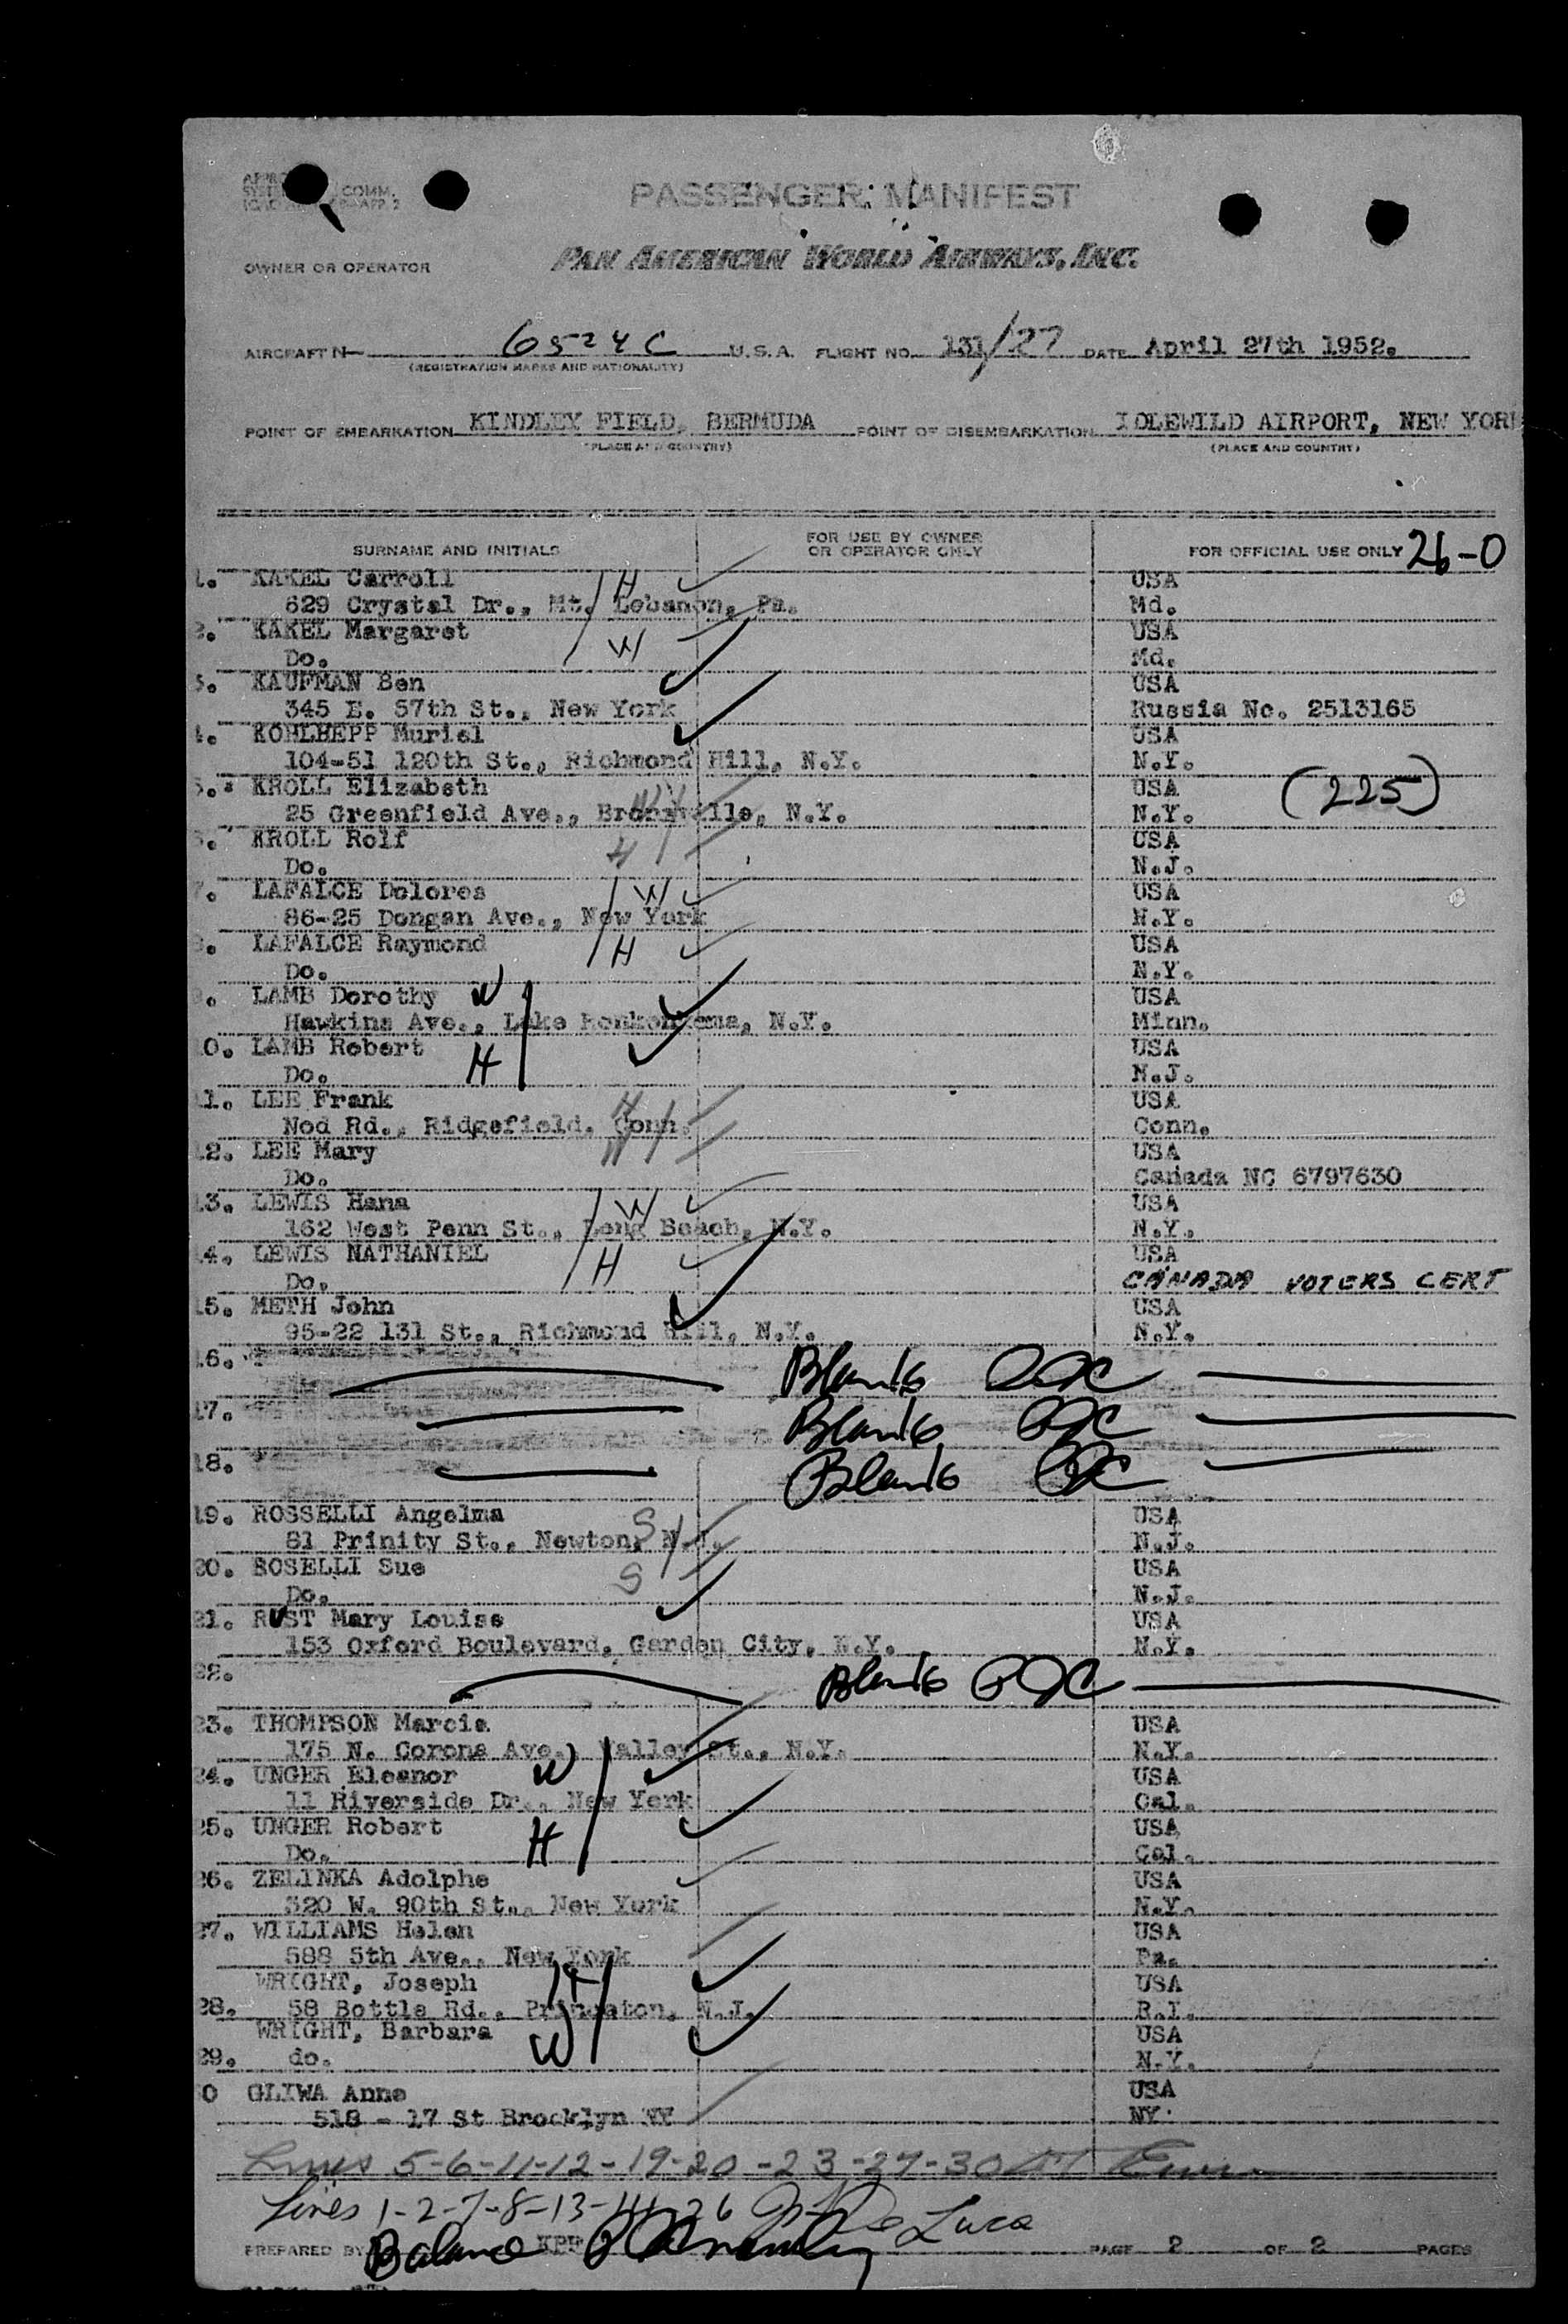 PASSENGER MANIFEST
OWNER OR OPERATOR PAN AMERICAN WORLD AIRWAYS, INC.
AIRCRAFT N 6524C U.S.A. FLIGHT NO. 131/27 DATE April 27th 1952.
(REGISTRATION MARKS AND NATIONALITY)
POINT OF EMBARKATION KINDLEY FIELD, BERMUDA POINT OF DISEMBARKATION IDLEWILD AIRPORT, NEW YORK
(PLACE AND COUNTRY) (PLACE AND COUNTRY)
SURNAME AND INITIALS FOR USE BY OWNER OR OPERATOR ONLY FOR OFFICIAL USE ONLY 26-0
1. KAKEL Carroll H USA
629 Crystal Dr., Mt. Lebanon, Pa. Md.
2. KAKEL Margaret W USA
Do. Md.
3. KAUFMAN Ben USA
345 E. 57th St., New York Russia No. 2513165
4. KOHLHEPP Muriel USA
104-51 120th St., Richmond Hill, N.Y. N.Y.
5. KROLL Elizabeth W USA (225)
25 Greenfield Ave., Bronxville, N.Y. N.Y.
6. KROLL Rolf H USA
Do. N.J.
7. LAFALCE Dolores W USA
86-25 Dongan Ave., New York N.Y.
8. LAFALCE Raymond H USA
Do. N.Y.
9. LAMB Dorothy W USA
Hawkins Ave., Lake Ronkonkoma, N.Y. Minn.
10. LAMB Robert H USA
Do. N.J.
11. LEE Frank H USA
Nod Rd., Ridgefield, Conn. Conn.
12. LEE Mary W USA
Do. Canada NC 6797630
13. LEWIS Hana W USA
162 West Penn St., Long Beach, N.Y. N.Y.
14. LEWIS NATHANIEL H USA
Do. CANADA VOTERS CERT
15. METH John USA
95-22 131 St., Richmond Hill, N.Y. N.Y.
16. Blank
17. Blank
18. Blank
19. ROSSELLI Angelma S USA
81 Prinity St., Newton, N.J. N.J.
20. ROSELLI Sue S USA
Do. N.J.
21. RUST Mary Louise USA
153 Oxford Boulevard, Garden City, N.Y. N.Y.
22. Blank
23. THOMPSON Marcia USA
175 N. Corona Ave., Valley St., N.Y. N.Y.
24. UNGER Eleanor W USA
11 Riverside Dr., New York Cal.
25. UNGER Robert H USA
Do. Cal.
26. ZELINKA Adolphe USA
320 W. 90th St., New York N.Y.
27. WILLIAMS Helen USA
588 5th Ave., New York Pa.
WRIGHT, Joseph H USA
28. 58 Bottle Rd., Princeton, N.J. R.I.
WRIGHT, Barbara W USA
29. do. N.Y.
30 GLIWA Anne USA
518 - 17 St Brooklyn NY NY
Lines 5-6-11-12-19-20-23-27-30
Lines 1-2-7-8-13-14-26 De Luca
PREPARED BY Balance PAGE 2 OF 2 PAGES